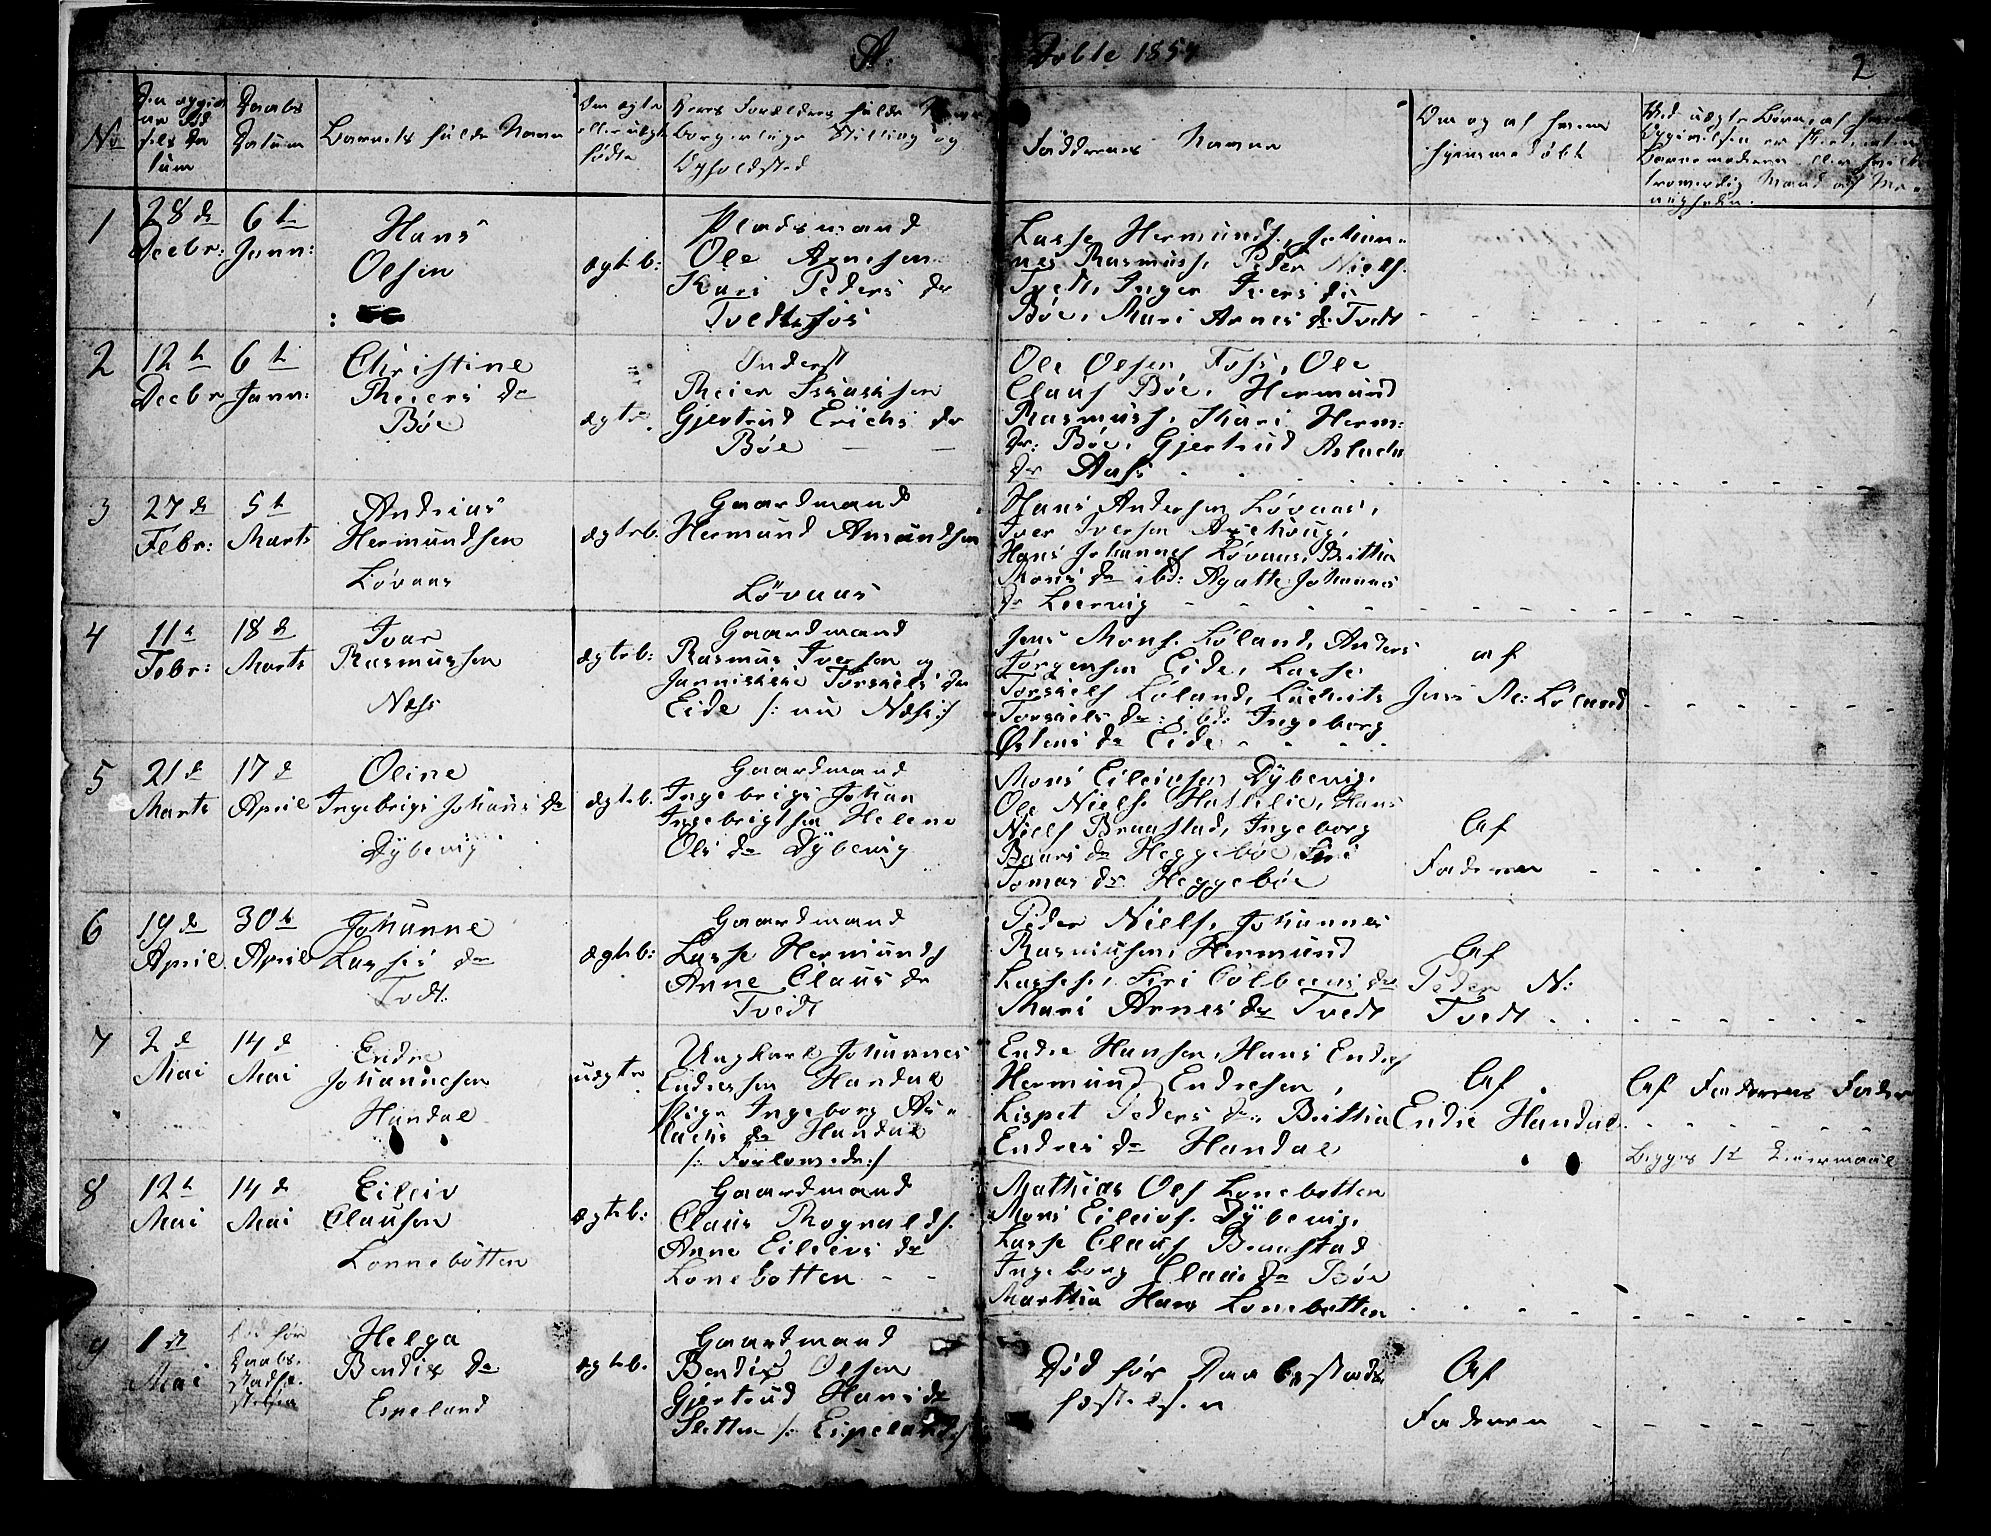 A. Døbte 1854
2
No
Den opgivne Fødselsdatum
Daabs Datum
Barnets fulde Navn
Om ægte eller uægte fødte
Deres Forældres fulde Navne borgerlige Stilling og Opholdsted
Faddernes Navne
Om og af hvem hjemmedøbt
1
28de Decbr:
6te Janr:
Hans
Olsen
ægteb:
Pladsmand
Ole Arnesen
Kari Peders Dr
Tvedt
Lasse Hermunds. Johan-
nes Rasmuss. Peder Niels.
Tvedt, Inger Ivers Dr
Bøe, Mari Arnes Dr Tvedt
2
12te Decbr
6te Janr:
Christine
Reiers Dr
Bøe
ægte.
Inderst
Reier Isaaksen
Gjertrud Erichs Dr
Bøe
Ole Olsen Foss, Ole
Claus Bøe, Hermund
Rasmuss. Kari Herm:
Dr: Bøe, Gjertrud Aslachs
Dr Aass
3
27de Febr:
5te Marts
Andreas
Hermundsen
Løvaas
ægteb:
Gaardmand
Hermund Amundsen
Løvaas
Hans Andersen Løvaas,
Iver Iversen
Hans Johannes Løvaas, Brithia
Mons Dr ibd: Agathe Johannes
Dr Leervig
4
11te Febr:
18de Marts
Ivar
Rasmussen
Næss
ægteb:
Gaardmand
Rasmus Iversen og
Jannikke Torkiels Dr
Eide /: nu Næss:/
Jens Mons. Løland, Anders
Jørgensen Eide, Lasse
Torkiels Løland,
Torkiels Dr: ibd: Ingeborg
Østens Dr Eide
af
Jens M: Løland
5
21de Marts
17de April
Oline
Ingebrigt Johans Dr
Dybevig
ægteb.
Gaardmand
Ingebrigt Johan
Ingebrigtsen Helene
Ols Dr Dybevig
Mons Eileivsen Dybevig.
Ole Niels. Hatlelie, Hans
Niels Braastad, Ingeborg
Baars Dr Heggebøe Siri
Tomas Dr Heggebøe
Af
Faderen
6
19de April
30te April
Johanne
Lasses Dr
Tvedt
ægteb:
Gaardmand
Lasse Hermunds
Anne Claus Dr
Tvedt
Peder Niels, Johannes
Rasmusen, Hermund
Lasses., Siri Colbeens Dr
Mari Arnes Dr Tvedt
Af
Peder N:
Tvedt
7
2de Mai
14de Mai
Endre
Johannesen
Handal
uægte
Ungkarl Johannes
Endresen Handal
Pige Ingeborg As-
lachs Dr Handal
/: Forlovede:/
Endre Hansen, Hans Endres
Hermund Endresen,
Lispet Peders Dr. Brithia
Endres Dr Handal
Af
Endre Handal
Af Faderens Fader
Begges 1te Leiermaal
8
12te Mai
14de Mai
Eileiv
Clausen
Lonnebotten
ægteb:
Gaardmand
Claus Rognalds.
Anne Eileivs Dr
Lonebotten
Mathias Ols Lonebotten
Mons Eileivs. Dybevig,
Lasse Claus Braastad
Ingeborg Claus Dr Bøe
Marthia Hans Lonebotten
9
1ste Mai
død før Daabs-stadfæ-stelsen
Helga
Bendix Dr
Espeland
ægteb.
Gaardmand
Bendix Olsen
Gjertrud Hans Dr
Sletten /: Espeland:/
Død før Daabsstad-
fæstelsen
Af
Faderen